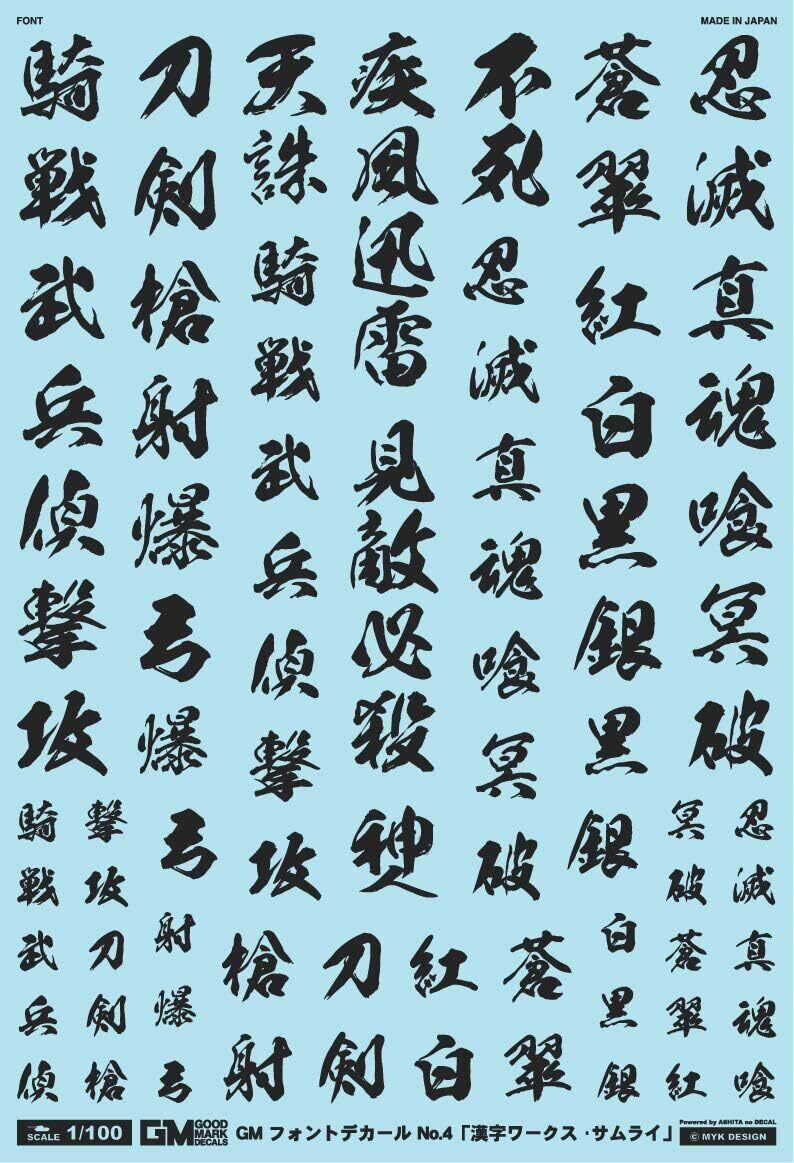 FONT
MADE IN JAPAN
忍滅真魂喰冥破
蒼翠紅白黒銀黒銀
不死
忍滅真魂喰冥破
疾風迅雷
見敵必殺
神人
天誅
騎戦武兵偵撃攻
刀剣槍射爆弓爆弓
騎戦武兵偵撃攻
忍滅真魂喰
冥破蒼翠紅
白黒銀
蒼翠
紅白
刀剣
槍射
射爆弓
撃攻刀剣槍
騎戦武兵偵
SCALE 1/100
GM GOOD MARK DECALS
GM フォントデカール No.4「漢字ワークス・サムライ」
Powered by ASHITA no DECAL
© MYK DESIGN